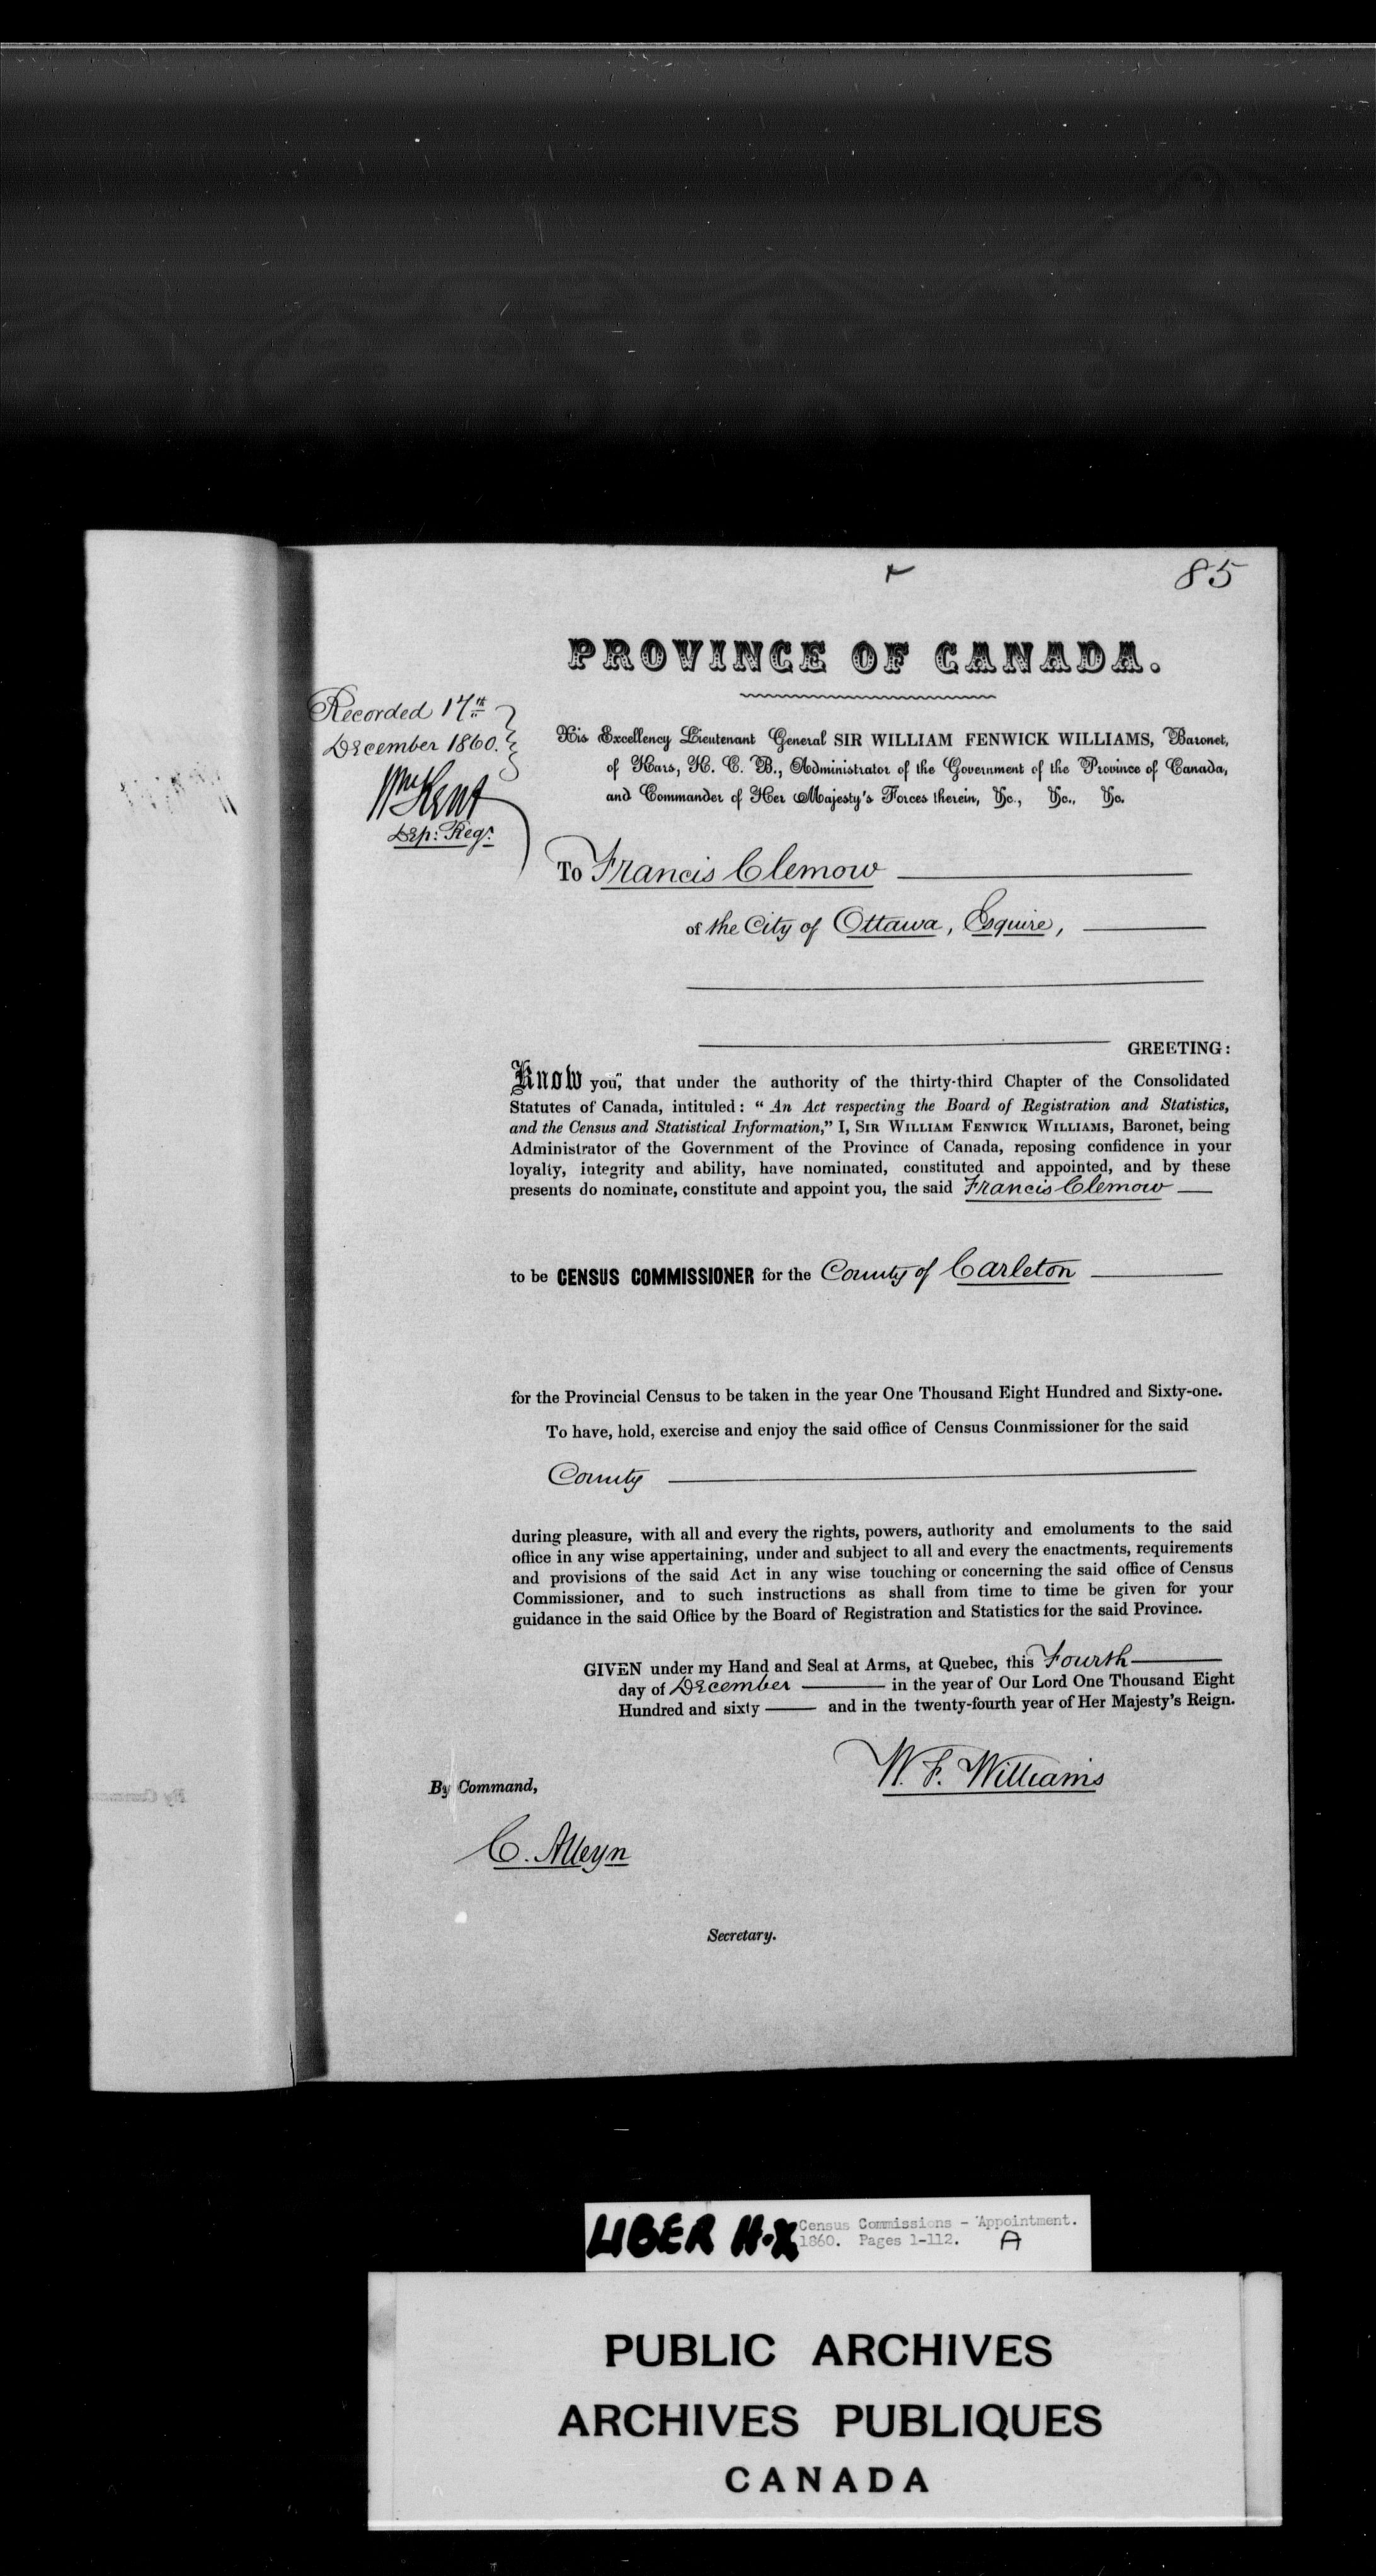 85
PROVINCE OF CANADA.
Recorded 17th
December 1860.
Wm Kent
Dep: Regr.
His Excellency Lieutenant General SIR WILLIAM FENWICK WILLIAMS, Baronet,
of Kars, K. C. B., Administrator of the Government of the Province of Canada,
and Commander of Her Majesty's Forces therein, &c., &c., &c.
To Francis Clemow
of the City of Ottawa, Esquire,
GREETING:
Know you, that under the authority of the thirty-third Chapter of the Consolidated
Statutes of Canada, intituled: "An Act respecting the Board of Registration and Statistics,
and the Census and Statistical Information," I, SIR WILLIAM FENWICK WILLIAMS, Baronet, being
Administrator of the Government of the Province of Canada, reposing confidence in your
loyalty, integrity and ability, have nominated, constituted and appointed, and by these
presents do nominate, constitute and appoint you, the said Francis Clemow
to be CENSUS COMMISSIONER for the County of Carleton
for the Provincial Census to be taken in the year One Thousand Eight Hundred and Sixty-one.
To have, hold, exercise and enjoy the said office of Census Commissioner for the said
County
during pleasure, with all and every the rights, powers, authority and emoluments to the said
office in any wise appertaining, under and subject to all and every the enactments, requirements
and provisions of the said Act in any wise touching or concerning the said office of Census
Commissioner, and to such instructions as shall from time to time be given for your
guidance in the said Office by the Board of Registration and Statistics for the said Province.
GIVEN under my Hand and Seal at Arms, at Quebec, this Fourth
day of December in the year of Our Lord One Thousand Eight
Hundred and sixty and in the twenty-fourth year of Her Majesty's Reign.
W. F. Williams
By Command,
C. Alleyn
Secretary.
LIBER H-X Census Commissions - Appointment.
1860. Pages 1-112. A
PUBLIC ARCHIVES
ARCHIVES PUBLIQUES
CANADA